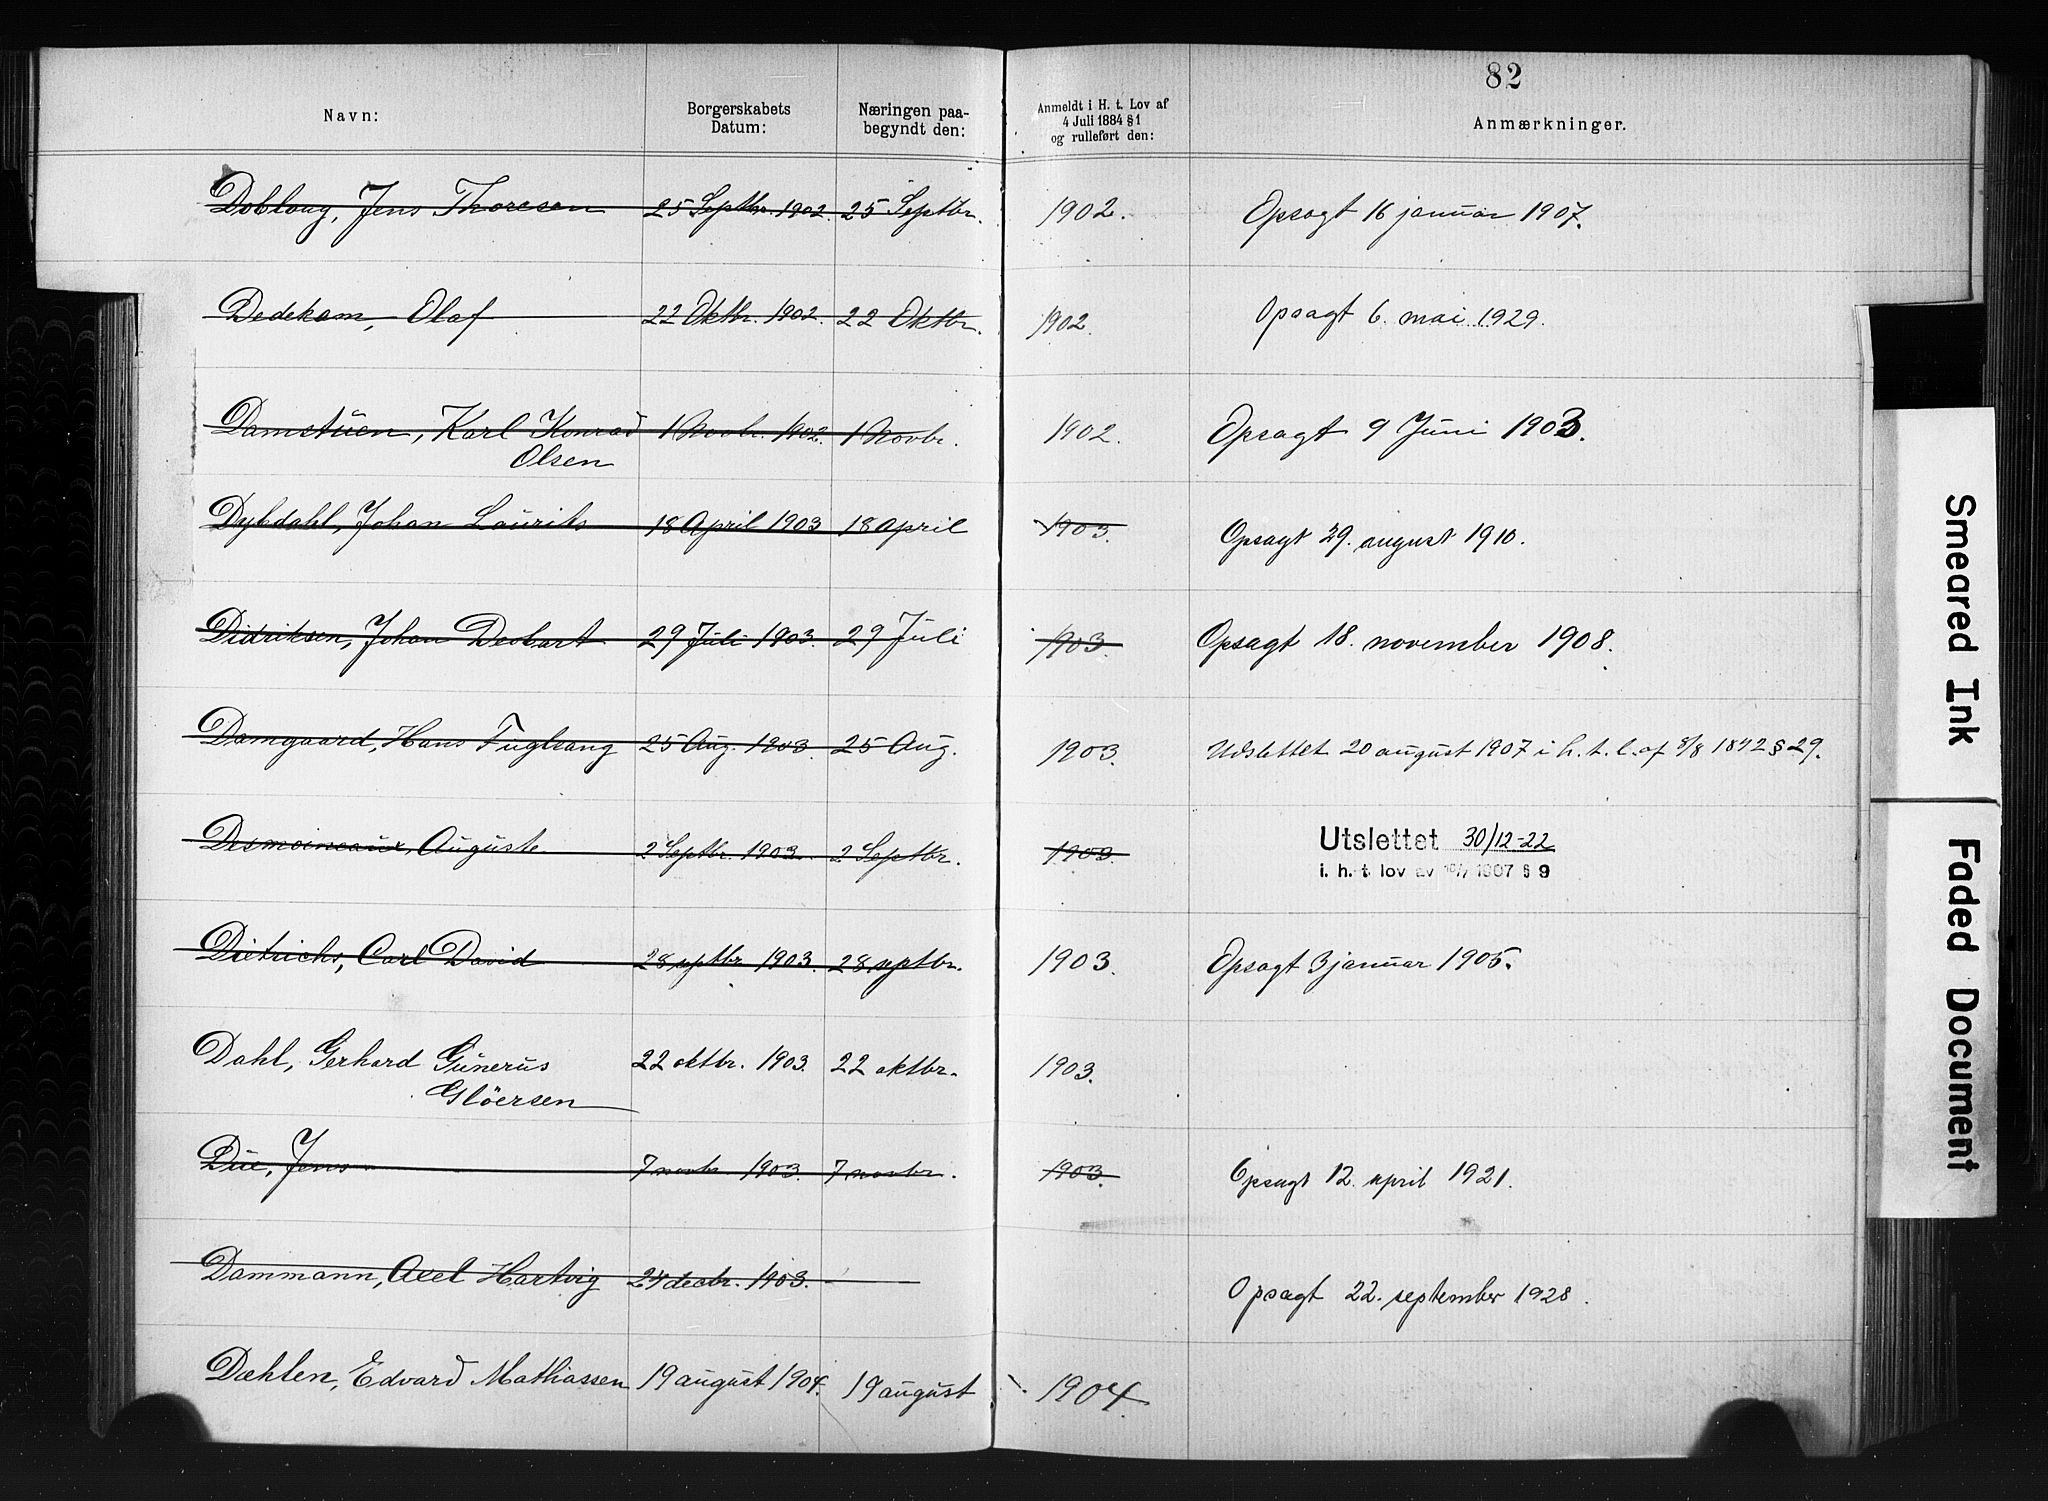 82
Navn: Borgerskabets Datum: Næringen paabegyndt den: Anmeldt i H. t. Lov af 4 Juli 1884 § 1 og rulleført den: Anmærkninger.
Doblaug, Jens Thoresen 25 Septbr. 1902. 25 Septbr. 1902. Opsagt 16 januar 1907.
Dedekam, Olaf 22 Oktbr. 1902. 22 Oktbr. 1902. Opsagt 6. mai 1929.
Damstuen, Karl Konrad 1 Novbr. 1902. 1 Novbr. 1902. Opsagt 9 Juni 1903.
Olsen
Dybdahl, Johan Laurits 18 April 1903 18 april 1903. Opsagt 29. august 1910.
Didriksen, Johan Deobart 29 Juli 1903. 29 Juli 1903. Opsagt 18. november 1908.
Damgaard, Hans Fuglsang 25 Aug. 1903. 25 Aug. 1903. Udslettet 20 august 1907 i h. t. l. af 8/8 1842 § 29.
Desmoineaux, Auguste 2 Septbr. 1903. 2 Septbr. 1903. Utslettet 30/12-22
i. h. t. lov av 1907 § 9
Dietrichs, Carl David 28 septbr 1903. 28 septbr. 1903. Opsagt 3 januar 1905.
Dahl, Gerhard Gunerus 22 oktbr. 1903. 22 oktbr. 1903.
Gløersen
Due, Jens 7 novbr. 1903. 7 novbr. 1903. Opsagt 12. april 1921.
Dammann, Axel Hartvig 24 decbr. 1903. Opsagt 22. september 1928.
Dæhlen, Edvard Mathiassen 19 august 1904. 19 august 1904.
Smeared Ink
Faded Document